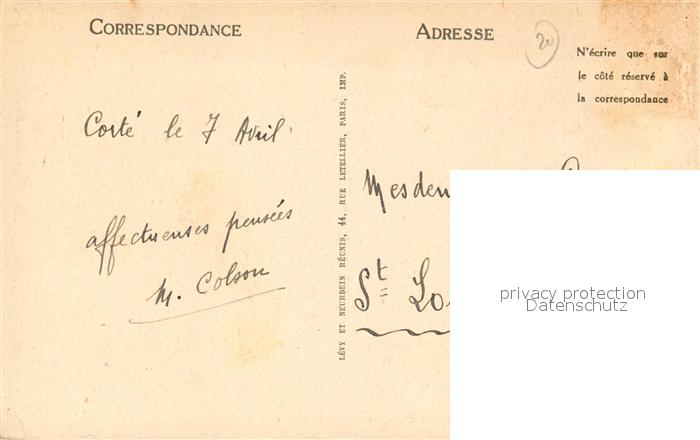 CORRESPONDANCE
ADRESSE
20
N'écrire que sur
le côté réservé à
la correspondance
Corté le 7 Avril
affectueuses pensées
M. Colson
LÉVY ET NEURDEIN RÉUNIS, 44, RUE LETELLIER, PARIS, IMP.
St
privacy protection
Datenschutz